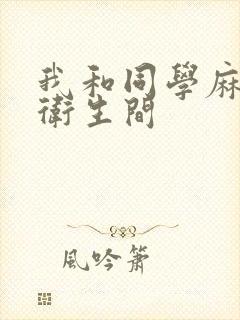 我和同學麻
衛生間
風吟簫